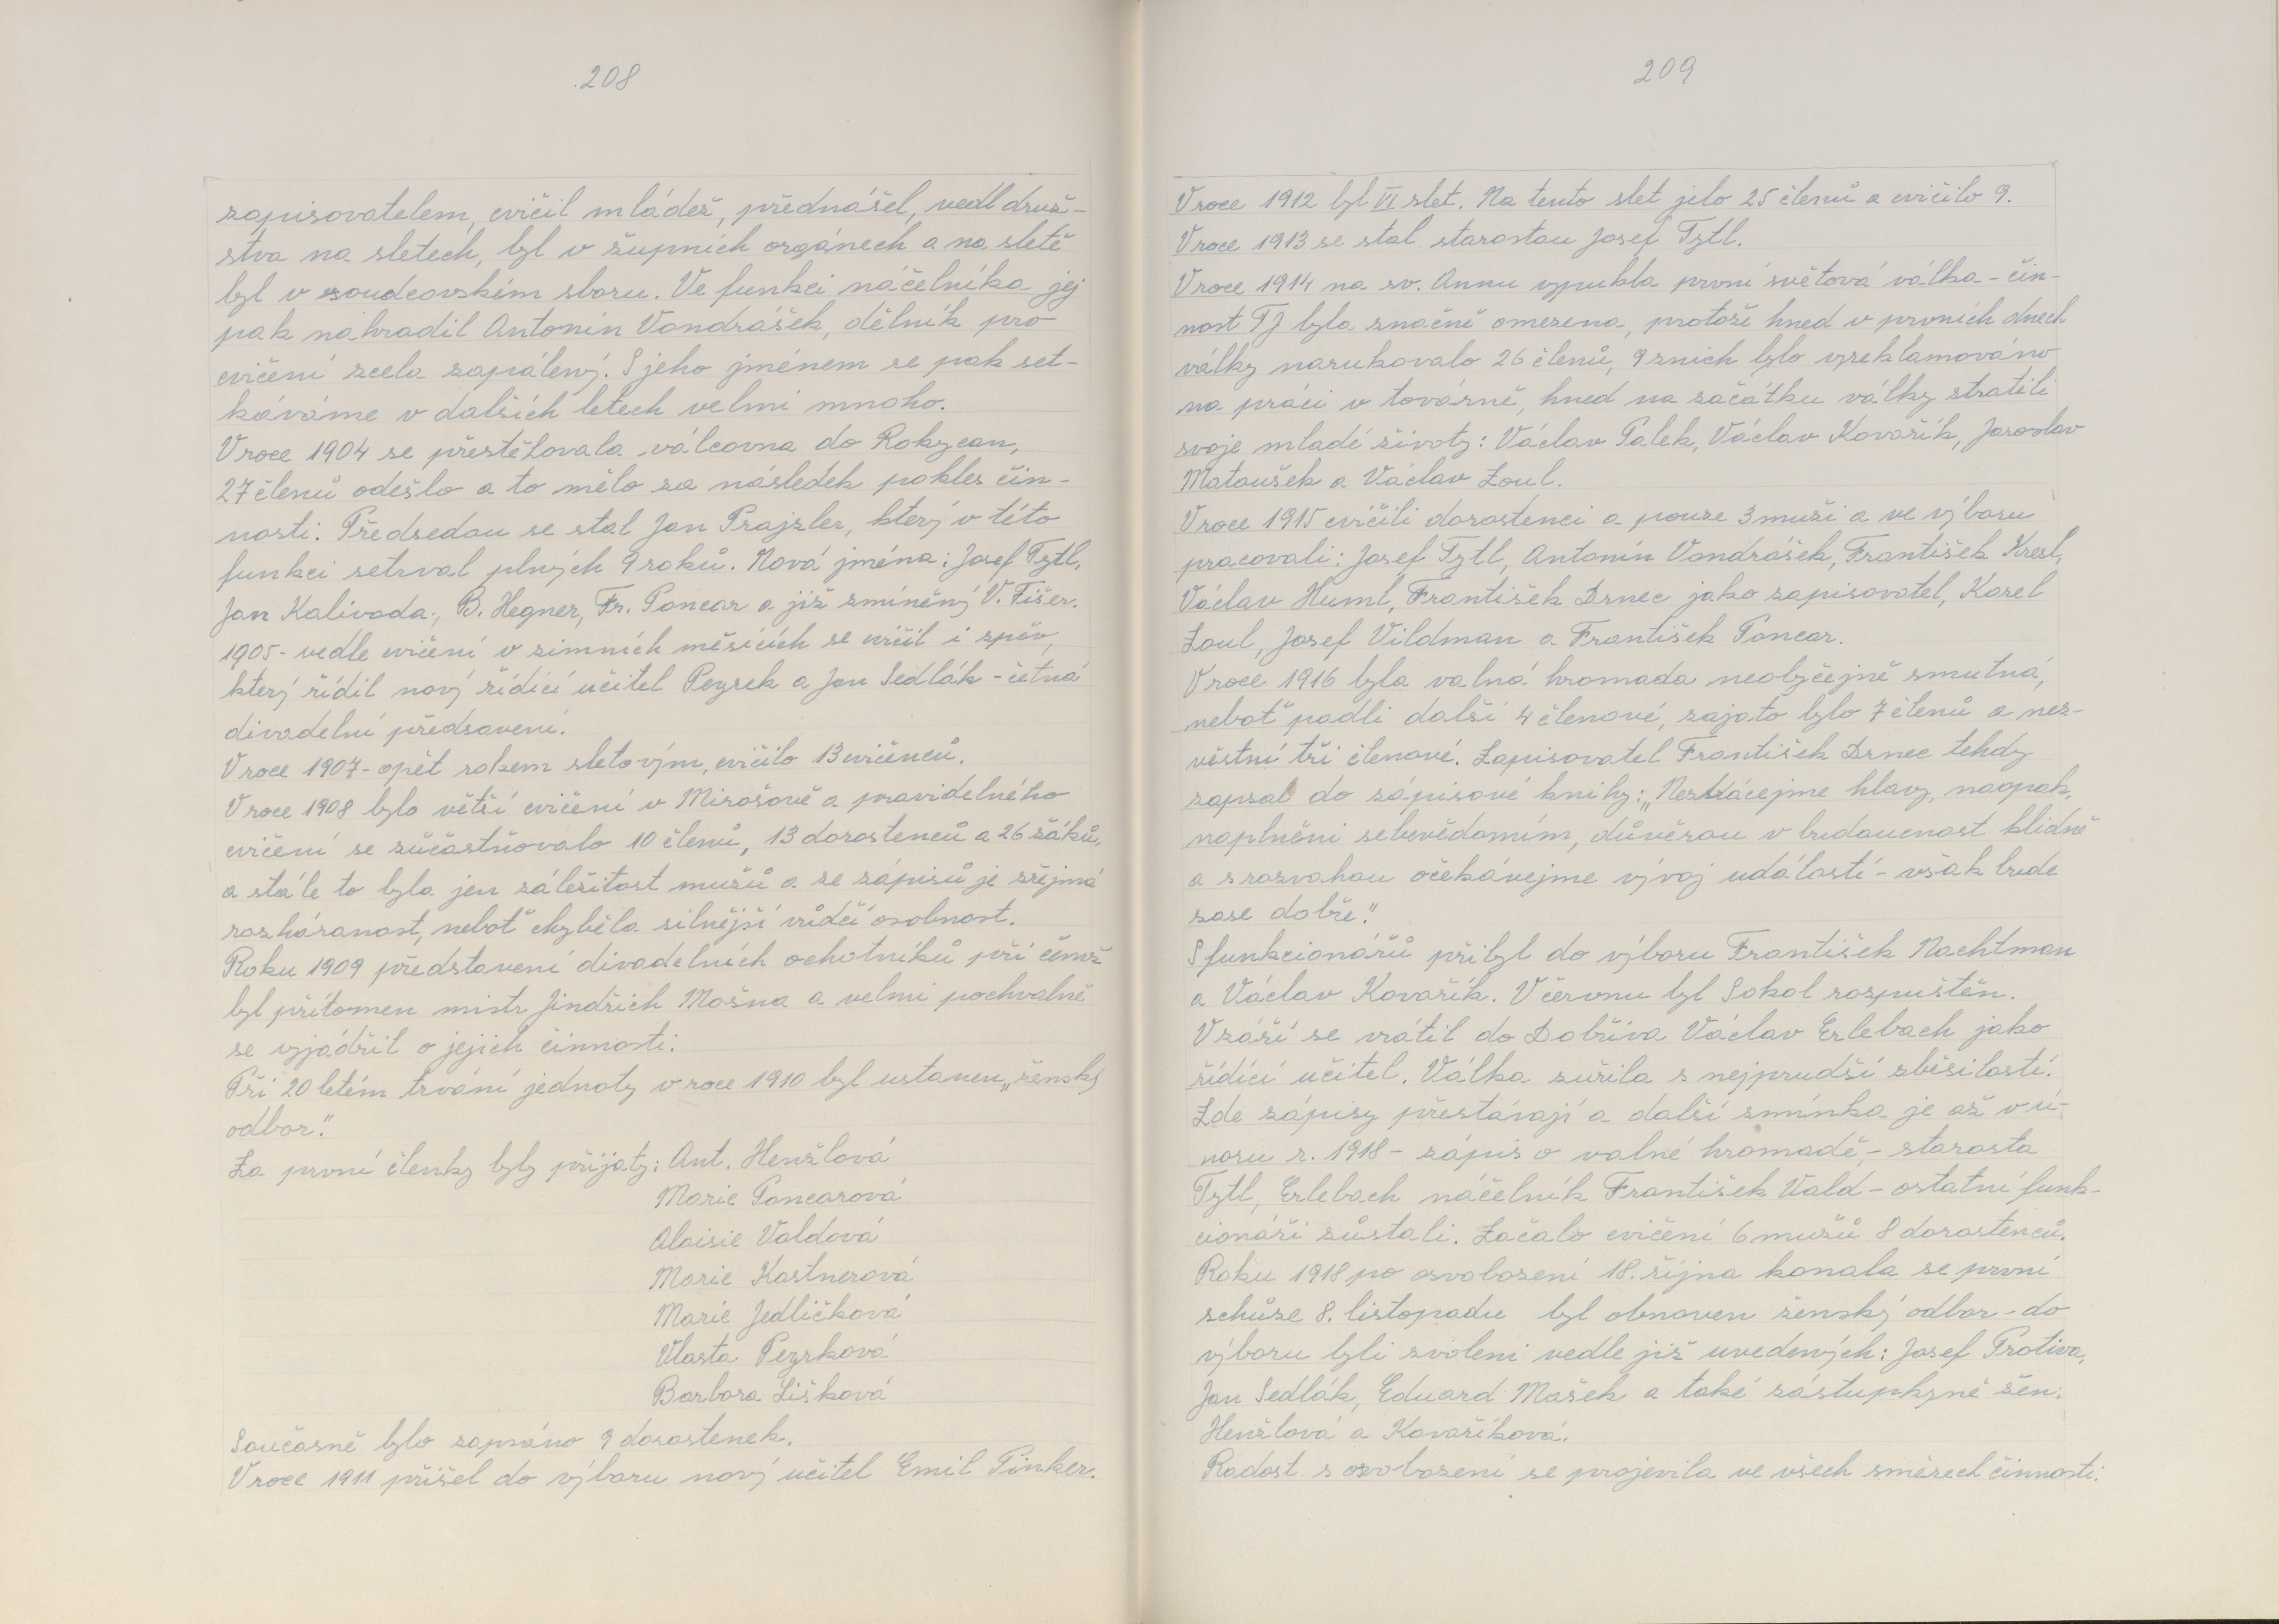 208
zapisovatelem, cvičil mládež, přednášel, vedl druž-
stva na sletech, byl v župních orgánech a na sletě
byl v soudcovském sboru. Ve funkci náčelníka jej
pak nahradil Antonín Vondrášek, dělník pro
cvičení zcela zapálený. S jeho jménem se pak set-
káváme v dalších letech velmi mnoho.
V roce 1904 se přestěhovala válcovna do Rokycan,
27 členů odešlo a to mělo za následek pokles čin-
nosti. Předsedou se stal Jan Prajzler, který v této
funkci setrval plných 9 roků. Nová jména: Josef Tytl,
Jan Kalivoda, B. Hegner, Fr. Poncar a již zmíněný V. Fišer.
1905 - vedle cvičení v zimních měsících se cvičil i zpěv,
který řídil nový řídící učitel Peyrek a Jan Sedlák - četná
divadelní předsavení.
V roce 1907 - opět rokem sletovým, cvičilo 13 cvičenců.
V roce 1908 bylo větší cvičení v Mirošově a pravidelného
cvičení se zůčastňovalo 10 členů, 13 dorostenců a 26 žáků,
a stále to byla jen záležitost mužů a ze zápisů je zřejmá
rozháranost, neboť chyběla silnější vůdčí osobnost.
Roku 1909 představení divadelních ochotníků při čemž
byl přítomen mistr Jindřich Mošna a velmi pochvalně
se vyjádřil o jejich činnosti.
Při 20 letém trvání jednoty v roce 1910 byl ustaven „ženský
odbor."
Za první členky byly přijaty: Ant. Henžlová
Marie Poncarová
Aloisie Valdová
Marie Kastnerová
Marie Jedličková
Vlasta Peyrková
Barbora Lišková
Současně bylo zapsáno 9 dorostenek.
V roce 1911 přišel do výboru nový učitel Emil Pinker.
209
V roce 1912 byl VI slet. Na tento slet jelo 25 členů a cvičilo 9.
V roce 1913 se stal starostou Josef Tytl.
V roce 1914 na sv. Annu vypukla první světová válka - čin-
nost TJ byla značně omezena, protože hned v prvních dnech
války narukovalo 26 členů, 9 z nich bylo vyreklamováno
na práci v továrně, hned na začátku války ztratili
svoje mladé životy: Václav Palek, Václav Kovařík, Jaroslav
Matoušek a Václav Zoul.
V roce 1915 cvičili dorostenci a pouze 3 muži a ve výboru
pracovali: Josef Tytl, Antonín Vondrášek, František Kresl,
Václav Huml, František Drnec jako zapisovatel, Karel
Zoul, Josef Vildman a František Poncar.
V roce 1916 byla valná hromada neobyčejně smutná,
neboť padli další 4 členové, zajato bylo 7 členů a nez-
věstní tři členové. Zapisovatel František Drnec tehdy
zapsal do zápisové knihy: „Neztrácejme hlavy, naopak,
naplněni sebevědomím, důvěrou v budoucnost klidně
a s rozvahou očekávejme vývoj událostí - však bude
zase dobře."
S funkcionářů přibyl do výboru František Nachtman
a Václav Kovařík. V červnu byl Sokol rozpuštěn.
V září se vrátil do Dobříva Václav Erlebach jako
řídící učitel. Válka zuřila s nejprudší zběsilostí.
Zde zápisy přestávají a další zmínka je až v ú-
noru r. 1918 - zápis o valné hromadě, - starosta
Tytl, Erlebach náčelník František Vald - ostatní funk-
cionáři zůstali. Začalo cvičení 6 mužů 8 dorostenců.
Roku 1918 po osvobození 18. října konala se první
schůze 8. listopadu byl obnoven ženský odbor - do
výboru byli zvoleni vedle již uvedených: Josef Protiva,
Jan Sedlák, Eduard Mašek a také zástupkyně žen:
Henžlová a Kovaříková.
Radost s osvobození se projevila ve všech směrech činnosti.